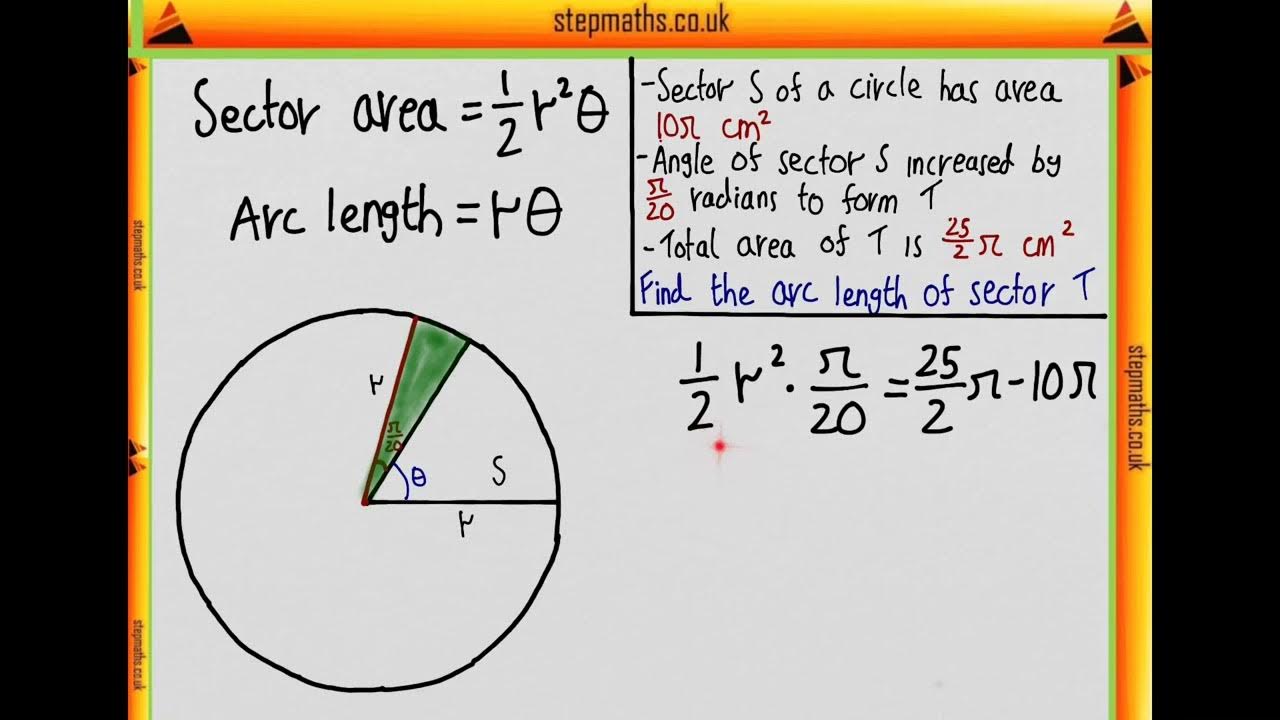 stepmaths.co.uk
Sector area = 1/2 r²θ
Arc length = rθ
-Sector S of a circle has area
10π cm²
-Angle of sector S increased by
π/20 radians to form T
-Total area of T is 25/2 π cm²
Find the arc length of sector T
1/2 r² · π/20 = 25/2 π - 10π
r
π/20
θ
S
r
stepmaths.co.uk
stepmaths.co.uk
stepmaths.co.uk